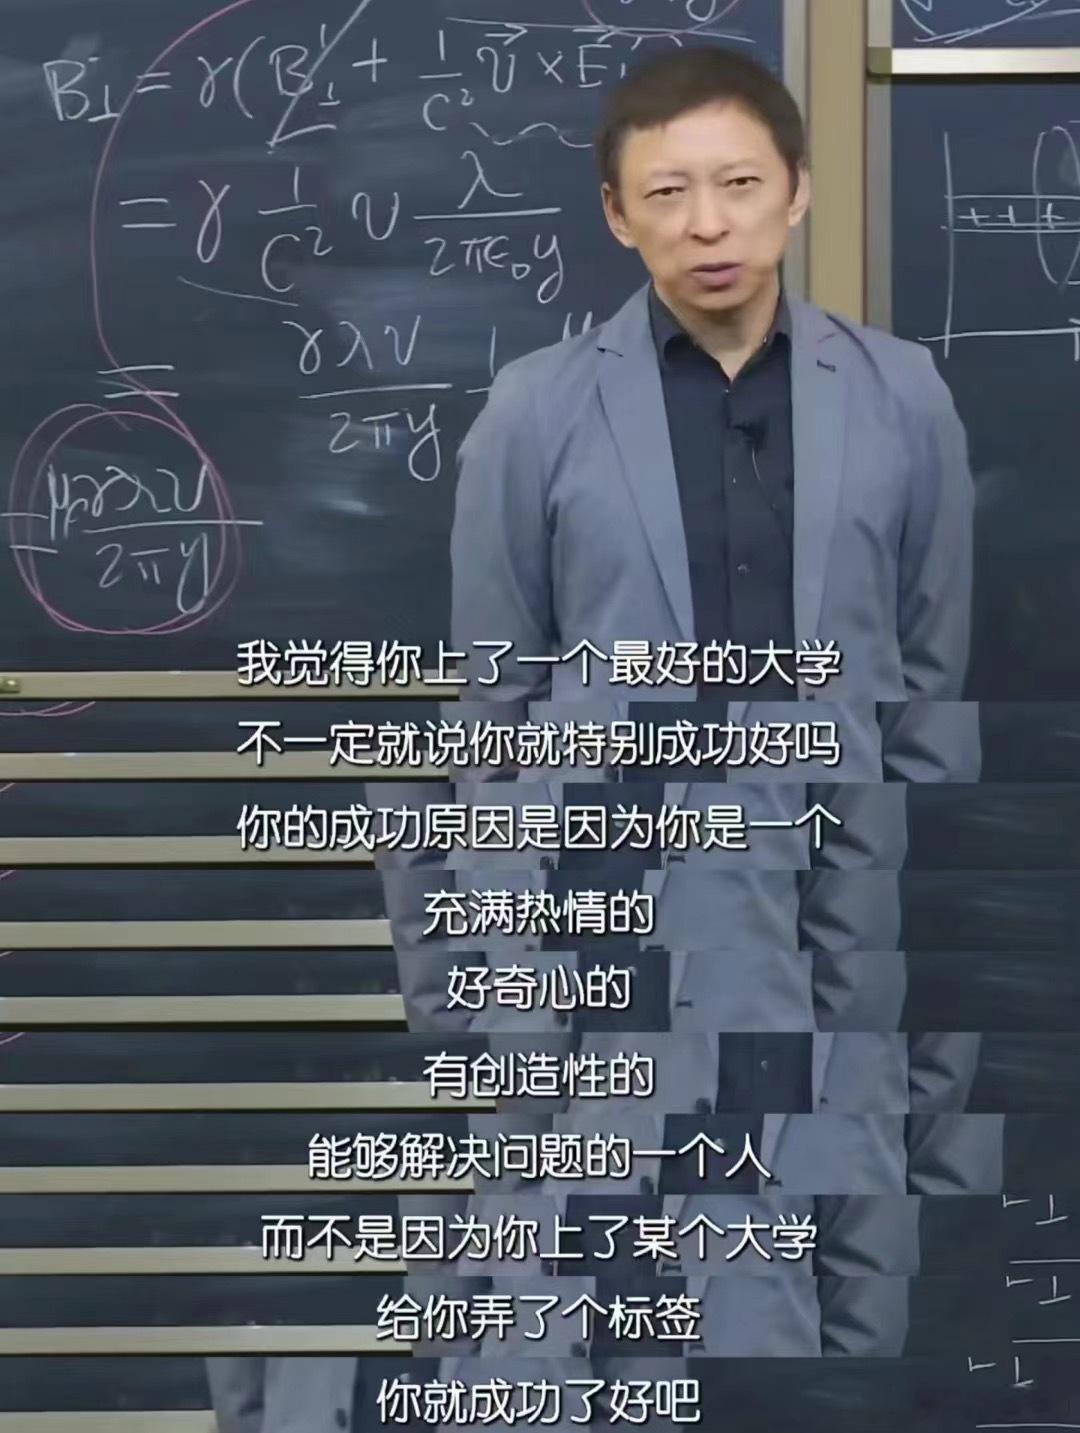 B⊥ = γ(B'⊥ + 1/c² v⃗ × E⃗'
= γ 1/c² v λ/2πε₀y
= γλv/2πy 1
= μ₀γλv/2πy
+ + +
我觉得你上了一个最好的大学
不一定就说你就特别成功好吗
你的成功原因是因为你是一个
充满热情的
好奇心的
有创造性的
能够解决问题的一个人
而不是因为你上了某个大学
给你弄了个标签
你就成功了好吧